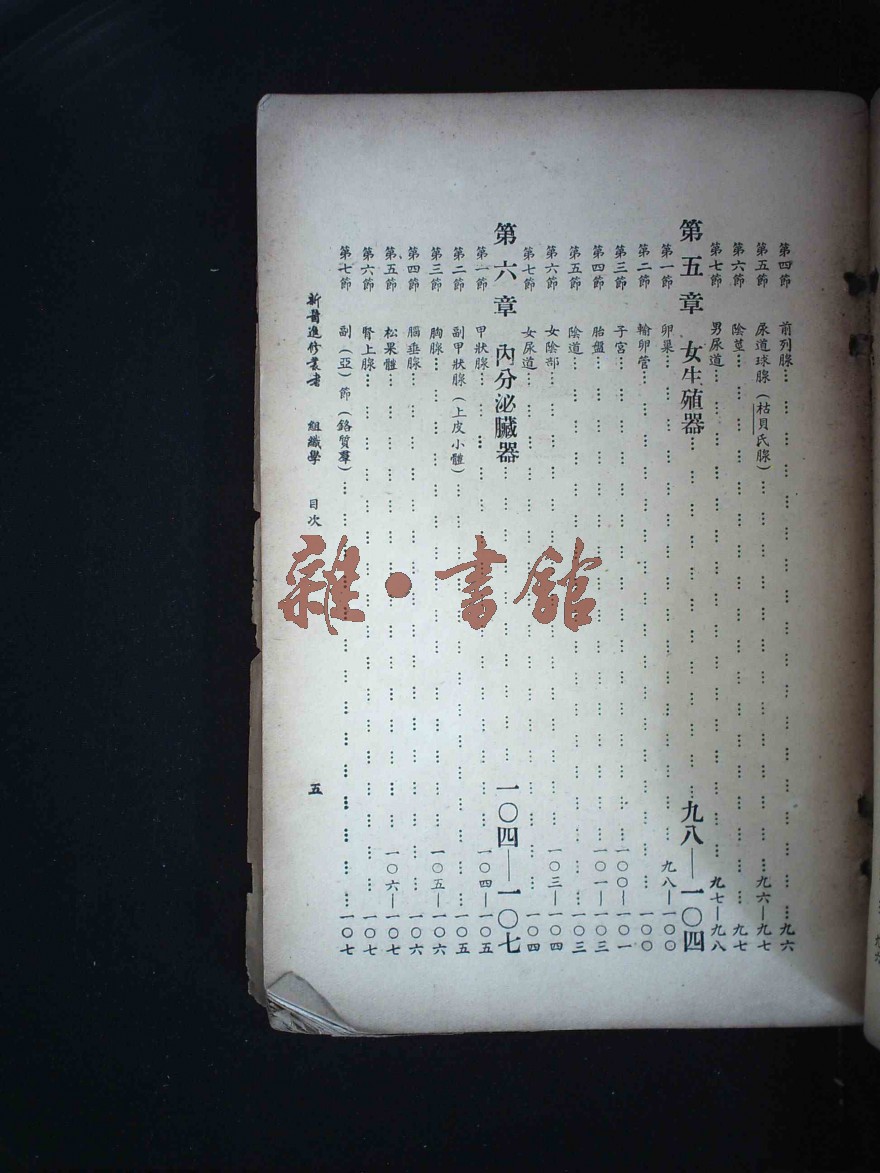 第四節 前列腺……九六
第五節 尿道球腺（枯貝氏腺）……九六—九七
第六節 陰莖……九七
第七節 男尿道……九七—九八
第五章 女生殖器……九八—一〇四
第一節 卵巢……九八—一〇〇
第二節 輸卵管……一〇〇
第三節 子宮……一〇〇—一〇一
第四節 胎盤……一〇一—一〇三
第五節 陰道……一〇三
第六節 女陰部……一〇三—一〇四
第七節 女尿道……一〇四
第六章 內分泌臟器……一〇四—一〇七
第一節 甲狀腺……一〇四—一〇五
第二節 副甲狀腺（上皮小體）……一〇五
第三節 胸腺……一〇五—一〇六
第四節 腦垂腺……一〇六
第五節 松果體……一〇六—一〇七
第六節 腎上腺……一〇七
第七節 副（亞）節（鉻質羣）……一〇七
新醫進修叢書 組織學 目次 五
雜·書館